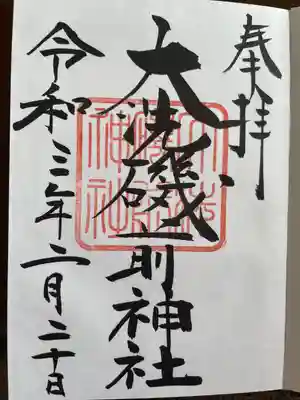 奉拝
大洗磯前神社
令和三年二月二十日